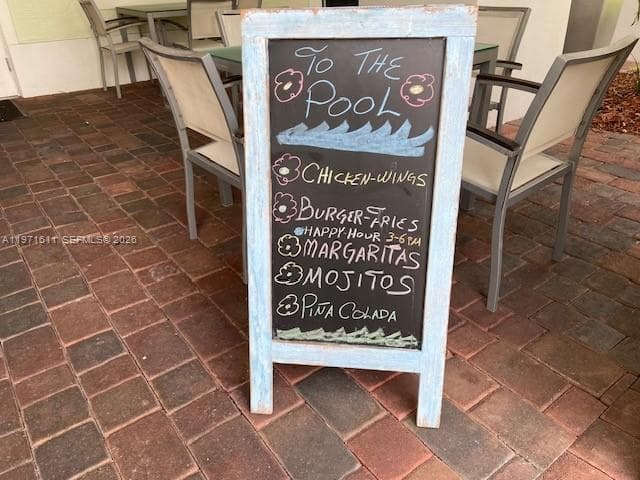 To THE
POOL
CHICKEN-WINGS
BURGER-FRIES
HAPPY-HOUR 3-6PM
MARGARITAS
MOJITOS
PIÑA COLADA
A11971511 SEFMLS © 2026